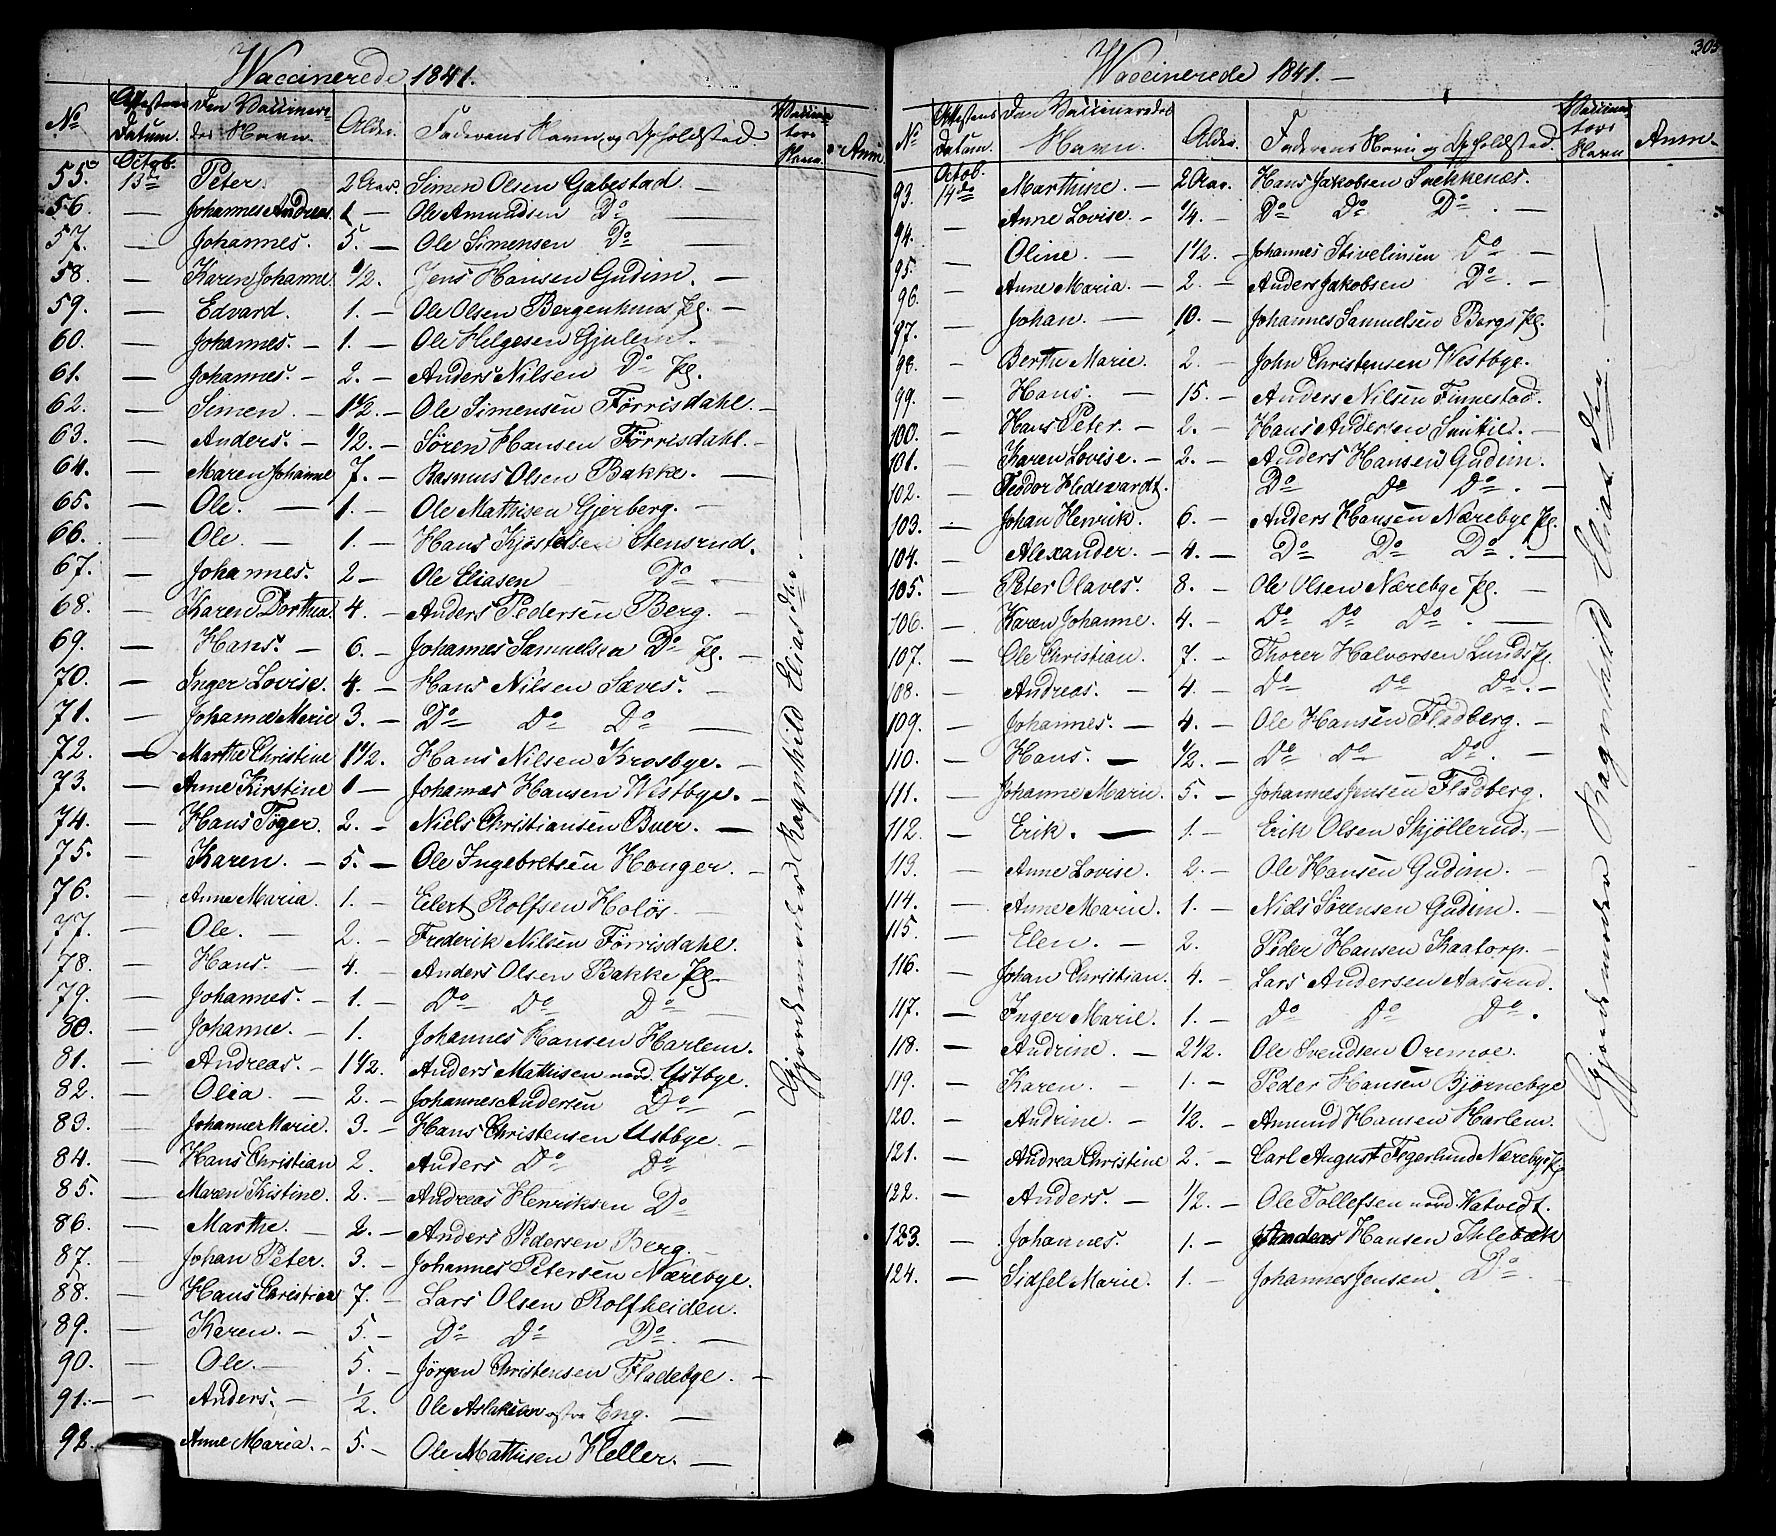 Vaccinerede 1841.
No Attestens Datum. Den Vaccineredes Navn. Alder. Faderens Navn og Opholdsted. Vaccinateurs Navn Anm
Octob.
55. 13de Peter. 2 Aar. Simen Olsen Gabestad —
56. — Johannes Andreas 1 — Ole Amundsen Do —
57. — Johannes. 5. — Ole Simensen Do —
58. — Karen Johanne 1/2. Jens Hansen Gudim. —
59. — Edvard. 1. — Ole Olsen Bergenhuus Pl. —
60. — Johannes. — 1. — Ole Helgesen Gjulem. —
61. — Johannes. — 2. — Anders Nilsen Do Pl.
62. — Simen. — 1 1/2. — Ole Simensen Förrisdahl. —
63. — Anders. — 1/2. — Sören Hansen Förrisdahl. —
64. — Maren Johanne 7. — Rasmus Olsen Bakke. —
65. — Ole. — 1. — Ole Mathisen Gjerberg. —
66. — Ole. — 1. — Hans Kjostelsen Stensrud.
67. — Johannes. 2 — Ole Eliasen Do —
68. — Karen Dorthea 4. — Anders Pedersen Berg. —
69. — Hans. — 6. — Johannes Samuelsen Do Pl. —
70. — Inger Lovise. 4. — Hans Nilsen Sæves. —
71. — Johanne Marie 3. — Do Do Do —
72. — Marthe Christine 1 1/2. Hans Nilsen Krosbye. —
73. — Anne Kirstine 1 — Johannes Hansen Westbye. —
74. — Hans Töger. 2. — Niels Christiansen Buer. —
75. — Karen. — 5. — Ole Ingebretsen Honger. —
76. — Anne Maria. 1. — Eilert Rolfsen Holös. —
77. — Ole. — 2. — Frederik Nilsen Förrisdahl.
78. — Hans. — 4. Anders Olsen Bakke Pl. —
79. — Johannes. — 1. — Do Do Do —
80. — Johanne. — 1. Johannes Hansen Harlem.
81. — Andreas. — 1 1/2. Anders Mathisen nord. Ustbye.
82. — Olea. — 2. — Johannes Andersen Do —
83. — Johanne Marie. 3. — Hans Christensen Ustbye. —
84. — Hans Christian 2. Anders Do Do
85. — Maren Kistine. 2. — Andreas Henriksen Do
86. — Marthe. 2. — Anders Pedersen Berg. —
87. — Johan Peter. 3. — Johannes Petersen Nærebye.
88. — Hans Christian 7. — Lars Olsen Rolfheiden.
89. — Karen. — 5. — Do Do Do —
90. — Ole. — 5. — Jörgen Christensen Fladebye. —
91. — — Anders. — 1/2. Ole Aslaksen østre Eng. —
92. — Anne Maria. — 5. — Ole Mathisen Heller. —
Gjordemoder Ragnhild Elias Dtr. —
305
Vaccinerede 1841. —
No Attestens Datum. Den Vaccineredes Navn. Alder. Faderens Navn og Opholdsted. Vaccinateurs Navn Anm.
Octob.
93. 14de Marthine. — 2 Aar. Hans Jakobsen Snekkenæs.
94. — Anne Lovise. — 1/4. — Do Do Do. —
95. — Oline. — 1 1/2. — Johannes Stivelinsen Do —
96. — Anne Maria. — 2. — Anders Jakobsen Do. —
97. — Johan. — 10. — Johannes Samuelsen Bergs Pl.
98. — Berthe Marie. 2. — John Christensen Westbye.
99. — Hans. — 15. — Anders Nilsen Finnestad.
100. — Hans Peter. — 2. — Hans Andersen Smitie. —
101. — Karen Lovise. — 2. — Anders Hansen Gudim.
102. — Teodor Hedevardt. Do Do Do. —
103. — Johan Henrik. 6. — Anders Hansen Nærebye Pl.
104. — Alexander. — 4. — Do Do Do. —
105. — Peter Olaves. 8. — Ole Olsen Nærebye Pl. —
106. — Karen Johanne. 4. — Do Do Do. —
107. — Ole Christian. 7. — Thorer Halvorsen Lunds Pl.
108. — Andreas. — 4. — Do Do Do. —
109. — Johannes. — 4. — Ole Hansen Fladberg. —
110. — Hans. — 1/2. — Do Do Do. —
111. — Johanne Marie. 5. — Johannes Jensen Fladberg.
112. — Erik. — 1. — Erik Olsen Skjöllerud. —
113. — Anne Lovise. 2. — Ole Hansen Gudim. —
114. — Anne Marie. 1. — Niels Sörensen Gudim. —
115. — Elen. — 2. Peder Hansen Kaatorp. —
116. — Johan Christian. 4. — Lars Andersen Aaserud.
117. — Inger Marie. 1. — Do Do Do.
118. — Andrine. — 2 1/2. Ole Svendsen Oremoe.
119. — Karen. — 1. — Peder Hansen Björnebye
120. — Andrine. — 1/2. — Amund Hansen Harlem.
121. — Andrea Christine 2. — Carl August Fegerlund Nærebye Pl
122. — Anders. — 1/2. — Ole Tollefsen nord Hatvedt.
123. — Johannes. 1. — Anders Hansen Ihlebæk
124. — Sidsel Marie. 1. — Johannes Jensen. Do. —
Gjordemoder Ragnhild Elias Dtr. —